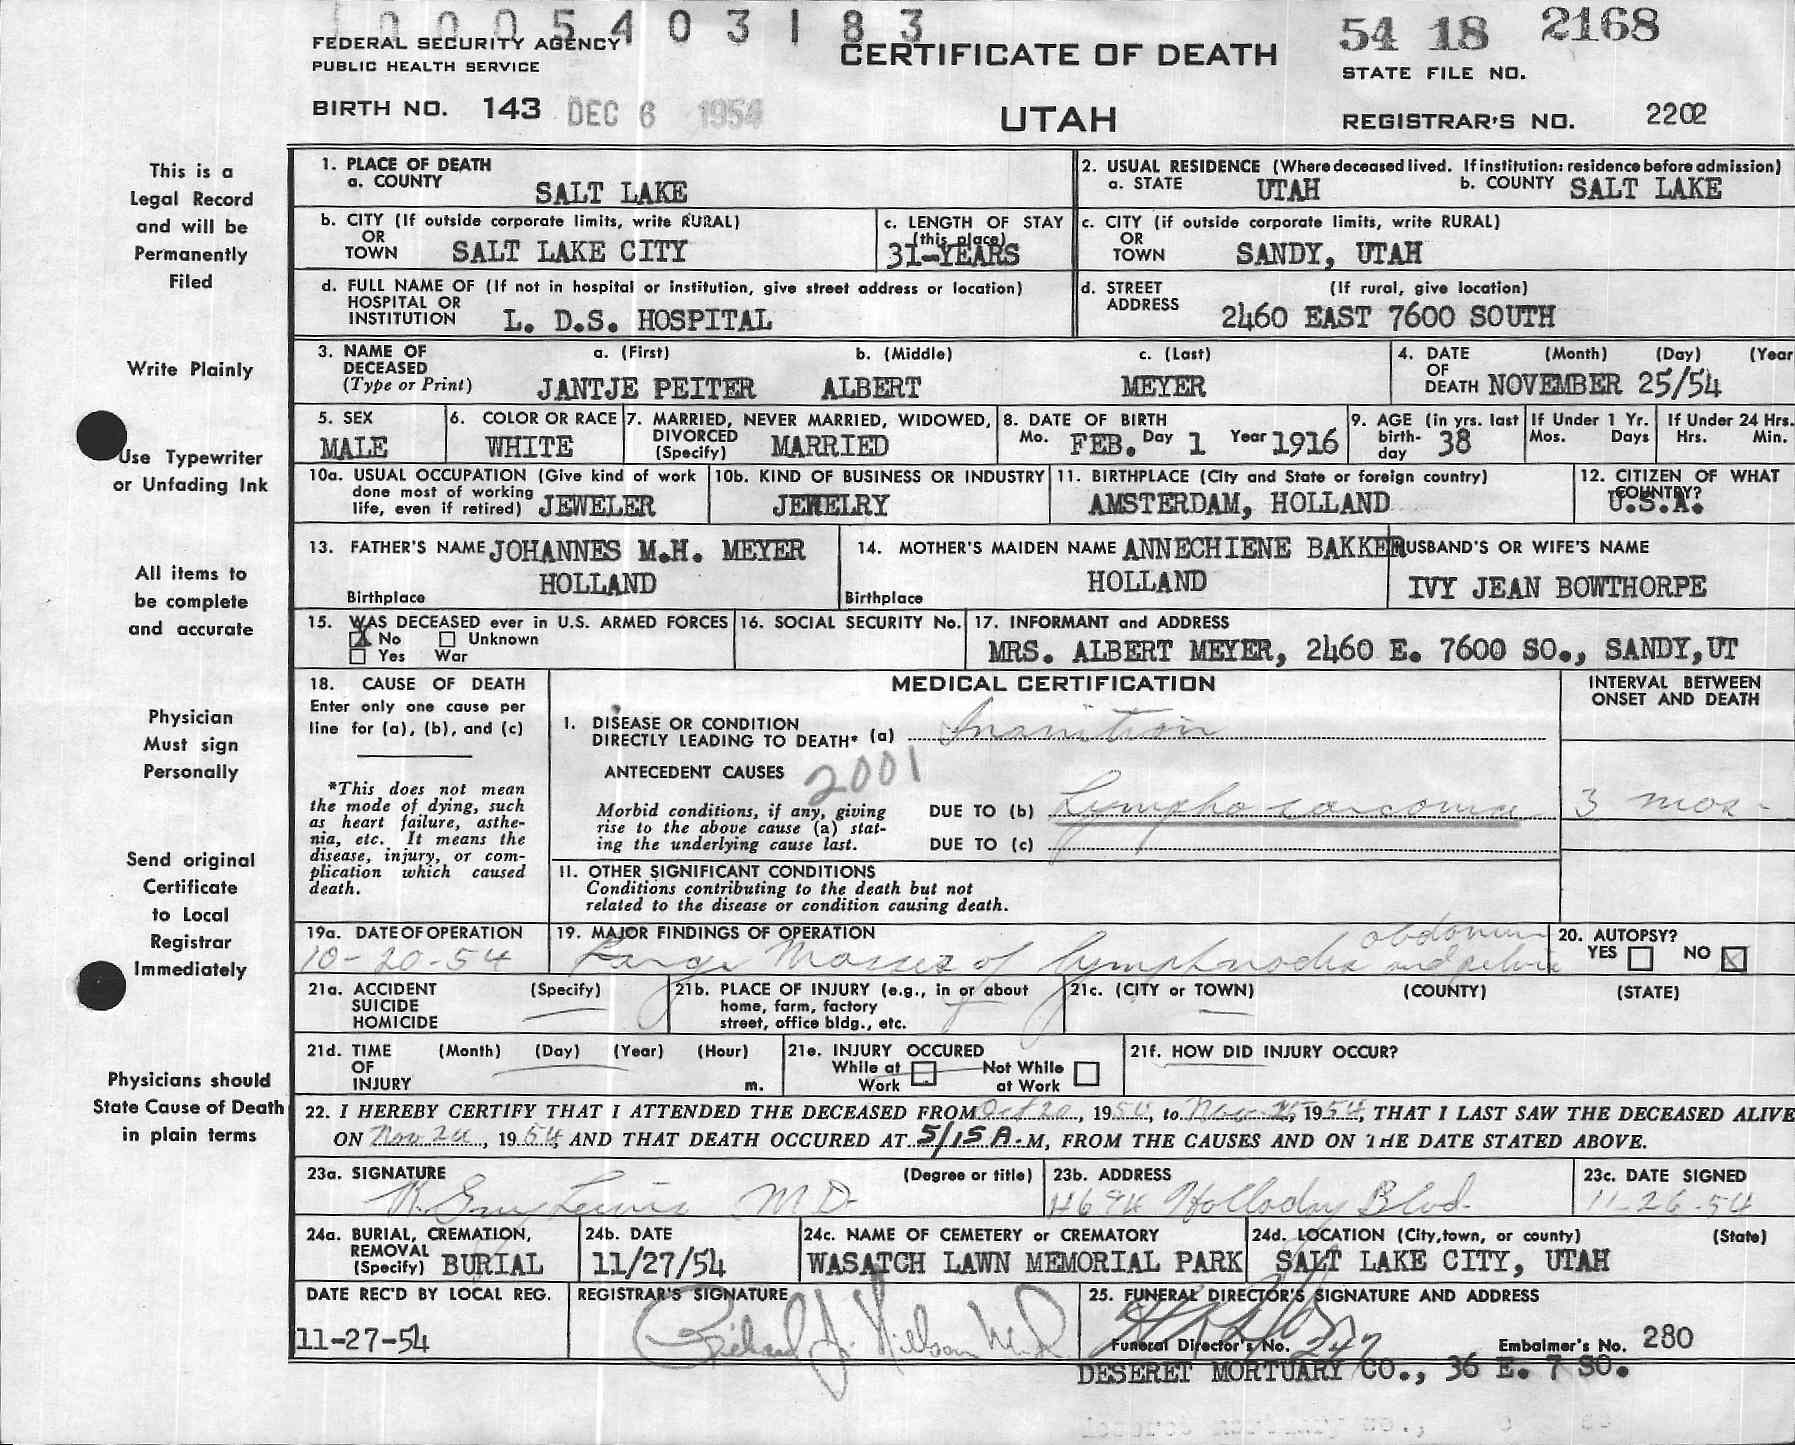 1 0 0 0 5 4 0 3 1 8 3
FEDERAL SECURITY AGENCY
PUBLIC HEALTH SERVICE
CERTIFICATE OF DEATH
54 18 2168
STATE FILE NO.
BIRTH NO. 143 DEC 6 1954
UTAH
REGISTRAR'S NO. 2202
This is a
Legal Record
and will be
Permanently
Filed
Write Plainly
Use Typewriter
or Unfading Ink
All items to
be complete
and accurate
Physician
Must sign
Personally
Send original
Certificate
to Local
Registrar
Immediately
Physicians should
State Cause of Death
in plain terms
1. PLACE OF DEATH
a. COUNTY SALT LAKE
2. USUAL RESIDENCE (Where deceased lived. If institution: residence before admission)
a. STATE UTAH b. COUNTY SALT LAKE
b. CITY (If outside corporate limits, write RURAL)
OR
TOWN SALT LAKE CITY
c. LENGTH OF STAY
(this place)
31-YEARS
c. CITY (if outside corporate limits, write RURAL)
OR
TOWN SANDY, UTAH
d. FULL NAME OF (If not in hospital or institution, give street address or location)
HOSPITAL OR
INSTITUTION L. D.S. HOSPITAL
d. STREET (If rural, give location)
ADDRESS 2460 EAST 7600 SOUTH
3. NAME OF a. (First) b. (Middle) c. (Last)
DECEASED
(Type or Print) JANTJE PEITER ALBERT MEYER
4. DATE (Month) (Day) (Year
OF
DEATH NOVEMBER 25/54
5. SEX
MALE
6. COLOR OR RACE
WHITE
7. MARRIED, NEVER MARRIED, WIDOWED,
DIVORCED
(Specify) MARRIED
8. DATE OF BIRTH
Mo. FEB. Day 1 Year 1916
9. AGE (in yrs. last
birth-
day 38
If Under 1 Yr.
Mos. Days
If Under 24 Hrs.
Hrs. Min.
10a. USUAL OCCUPATION (Give kind of work
done most of working
life, even if retired) JEWELER
10b. KIND OF BUSINESS OR INDUSTRY
JEWELRY
11. BIRTHPLACE (City and State or foreign country)
AMSTERDAM, HOLLAND
12. CITIZEN OF WHAT
COUNTRY?
U.S.A.
13. FATHER'S NAME JOHANNES M.H. MEYER
HOLLAND
Birthplace
14. MOTHER'S MAIDEN NAME ANNECHIENE BAKKER
HOLLAND
Birthplace
HUSBAND'S OR WIFE'S NAME
IVY JEAN BOWTHORPE
15. WAS DECEASED ever in U.S. ARMED FORCES
X No Unknown
Yes War
16. SOCIAL SECURITY No.
17. INFORMANT and ADDRESS
MRS. ALBERT MEYER, 2460 E. 7600 SO., SANDY,UT
18. CAUSE OF DEATH
Enter only one cause per
line for (a), (b), and (c)
*This does not mean
the mode of dying, such
as heart failure, asthe-
nia, etc. It means the
disease, injury, or com-
plication which caused
death.
MEDICAL CERTIFICATION
INTERVAL BETWEEN
ONSET AND DEATH
I. DISEASE OR CONDITION
DIRECTLY LEADING TO DEATH* (a) Inanition
ANTECEDENT CAUSES 2001
Morbid conditions, if any, giving
rise to the above cause (a) stat-
ing the underlying cause last.
DUE TO (b) Lympho sarcoma 3 mos-
DUE TO (c)
II. OTHER SIGNIFICANT CONDITIONS
Conditions contributing to the death but not
related to the disease or condition causing death.
19a. DATE OF OPERATION
10-20-54
19. MAJOR FINDINGS OF OPERATION
Large Masses of lymphnodes abdomen and pelvis
20. AUTOPSY?
YES NO X
21a. ACCIDENT (Specify)
SUICIDE
HOMICIDE
21b. PLACE OF INJURY (e.g., in or about
home, farm, factory
street, office bldg., etc.
21c. (CITY or TOWN) (COUNTY) (STATE)
21d. TIME (Month) (Day) (Year) (Hour)
OF
INJURY m.
21e. INJURY OCCURED
While at Not While
Work at Work
21f. HOW DID INJURY OCCUR?
22. I HEREBY CERTIFY THAT I ATTENDED THE DECEASED FROM Oct 20, 1954, to Nov 25, 1954, THAT I LAST SAW THE DECEASED ALIVE
ON Nov 24, 1954 AND THAT DEATH OCCURED AT 5/15 A.M, FROM THE CAUSES AND ON THE DATE STATED ABOVE.
23a. SIGNATURE (Degree or title)
Lewis MD
23b. ADDRESS
4694 Holladay Blvd.
23c. DATE SIGNED
11-26-54
24a. BURIAL, CREMATION,
REMOVAL
(Specify) BURIAL
24b. DATE
11/27/54
24c. NAME OF CEMETERY or CREMATORY
WASATCH LAWN MEMORIAL PARK
24d. LOCATION (City,town, or county) (State)
SALT LAKE CITY, UTAH
DATE REC'D BY LOCAL REG.
11-27-54
REGISTRAR'S SIGNATURE
Richard J. Nilson M.D.
25. FUNERAL DIRECTOR'S SIGNATURE AND ADDRESS
Funeral Director's No. 247 Embalmer's No. 280
DESERET MORTUARY CO., 36 E. 7 SO.